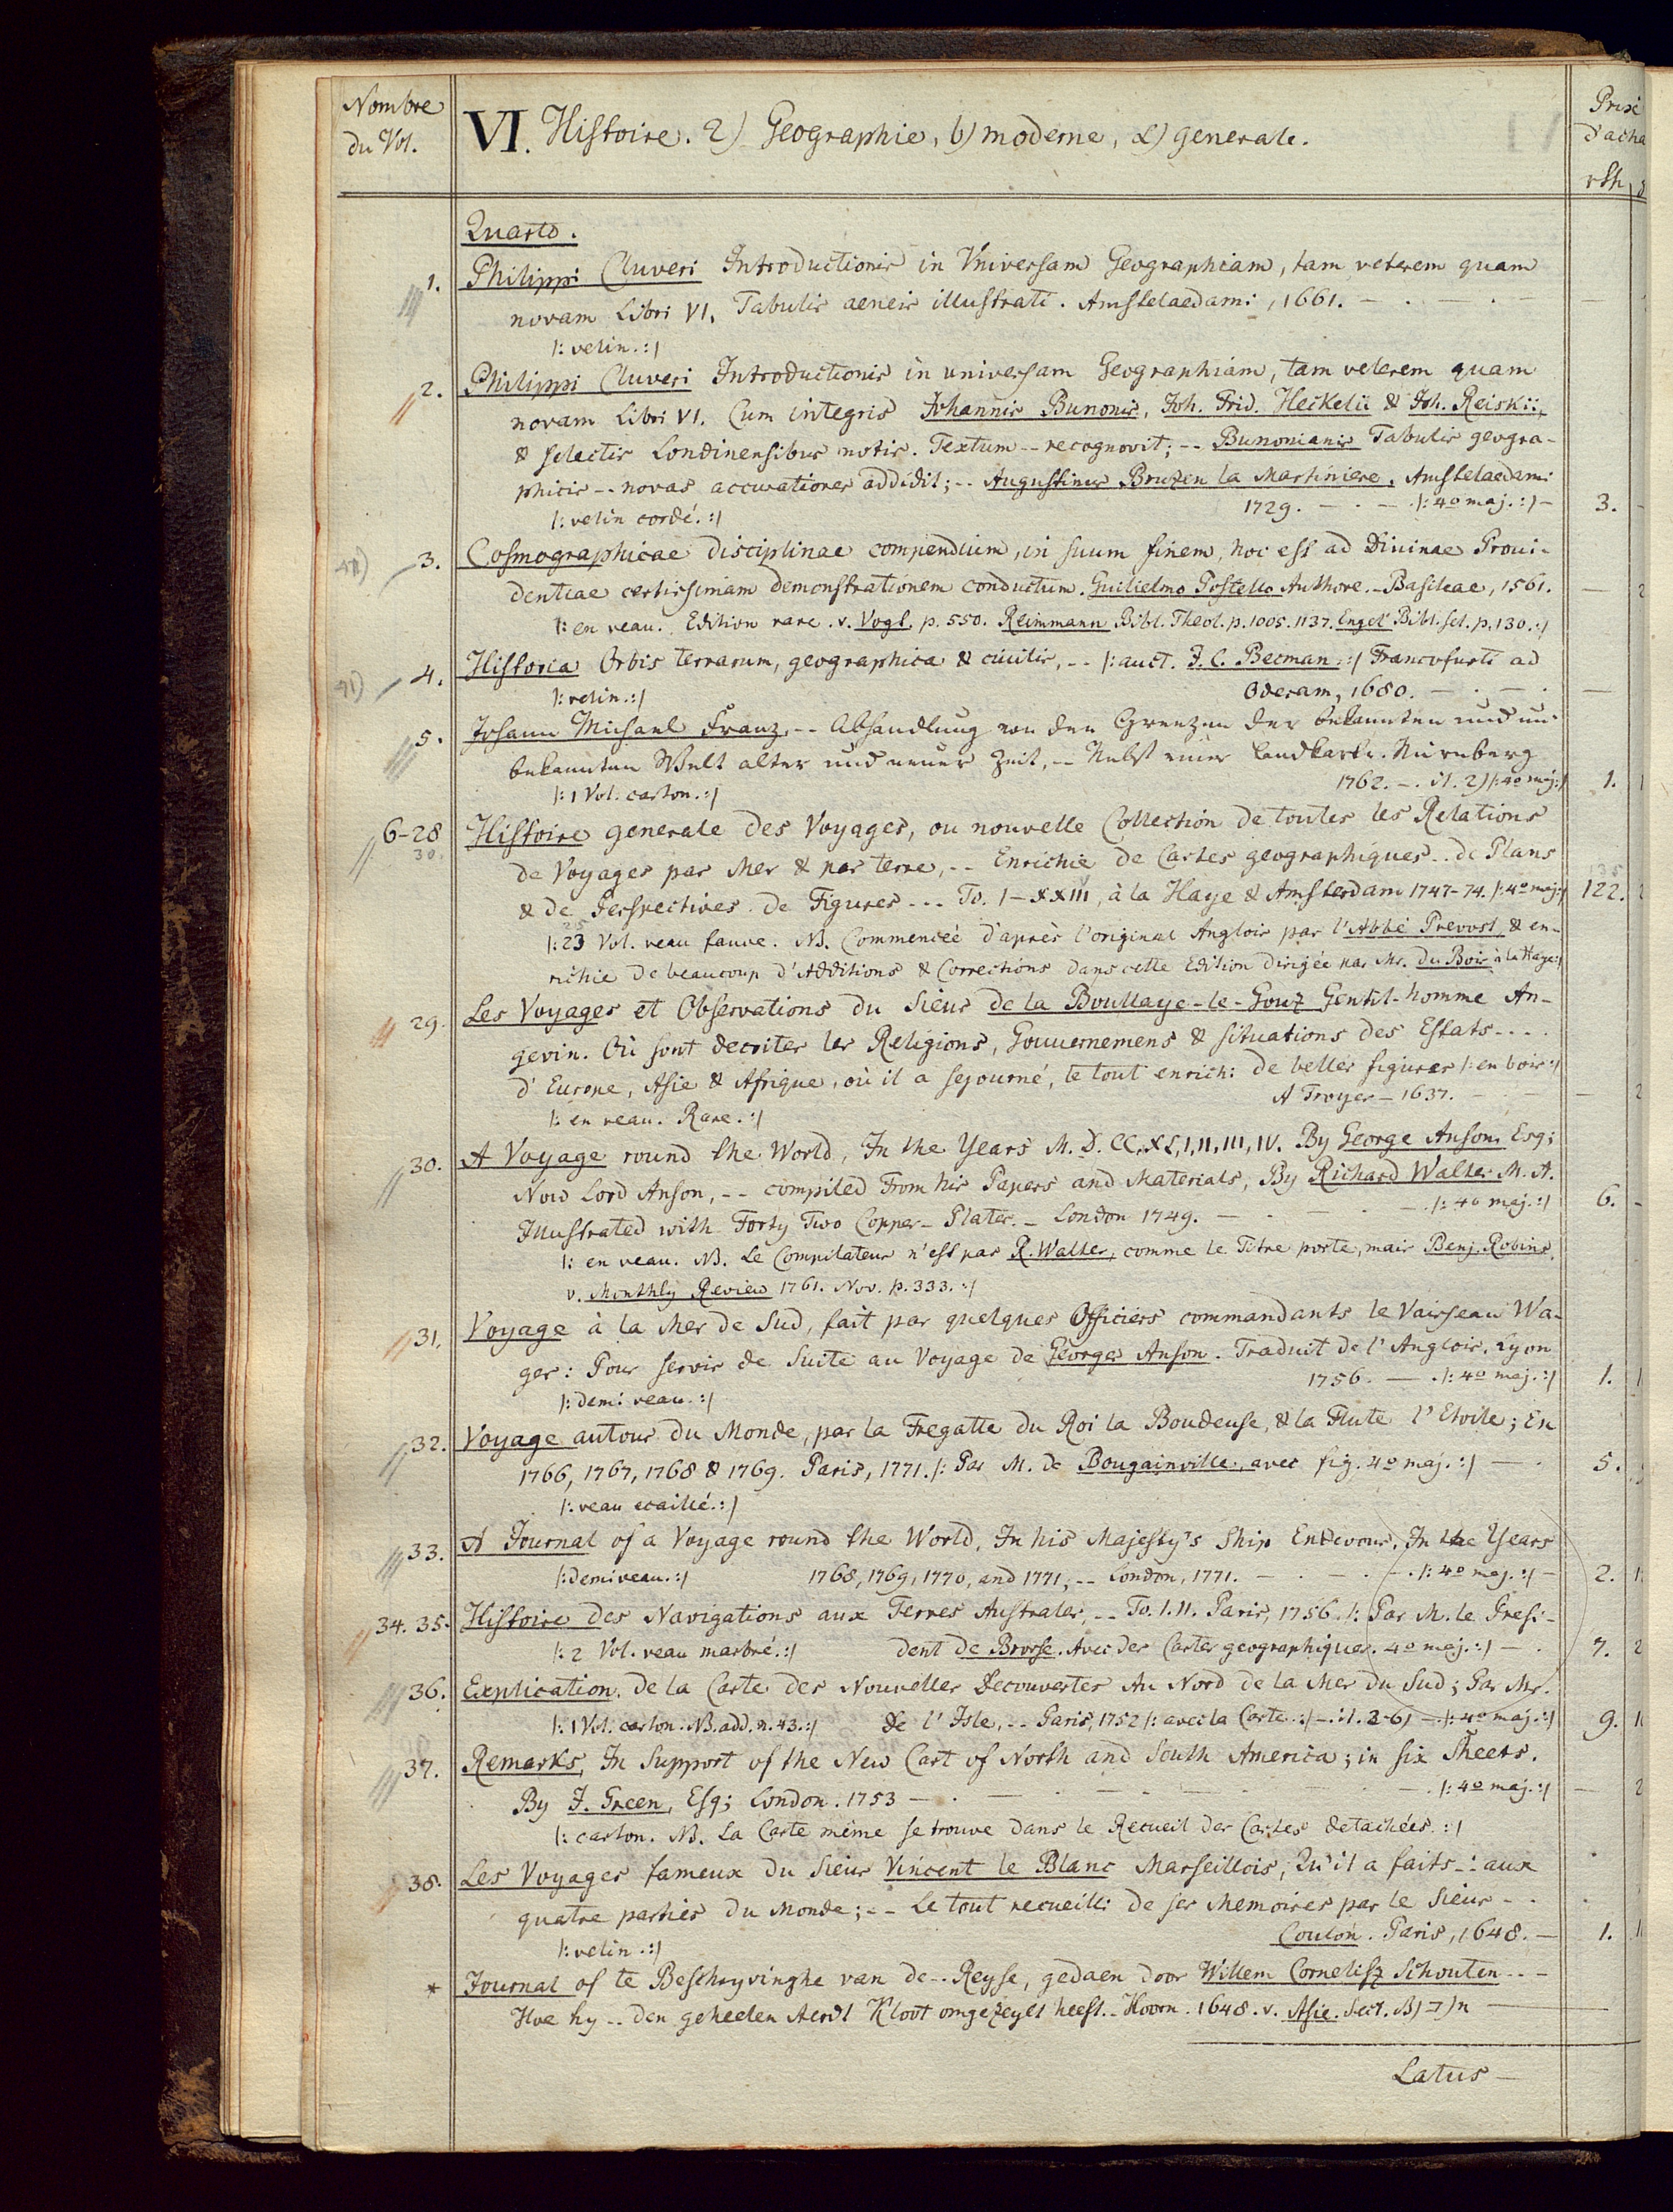 Nombre
du Vol.
VI. Histoire. 2) Geographie, b) moderne, α) generale.
Prix
d'acha
rth.
Quarto.
1. Philippi Cluveri Introductionis in Vniversam Geographiam, tam veterem quam
novam Libri VI. Tabulis aeneis illustrati. Amstelaedami, 1661. — . — . —
|: velin. :|
2. Philippi Cluveri Introductionis in universam Geographiam, tam veterem quam
novam Libri VI. Cum integris Johannis Bunonis, Joh. Frid. Hekelii & Joh. Reiskii,
& selectis Londinensibus notis. Textum -- recognovit; -- Bunonianis Tabulis geogra-
phicis -- novas accuratiores addidit; -- Augustinus Bruzen la Martiniere. Amstelaedami
|: velin cordé. :| 1729. — . — . |: 4o maj. :| — 3. -
3. Cosmographicae disciplinae compendium, in suum finem, hoc est ad Divinae Proui-
dentiae certissimam demonstrationem conductum. Guilielmo Postello Authore. - Basileae, 1561. —
|: en veau. Edition rare. v. Vogt. p. 550. Reimmann Bibl. Theol. p. 1005. 1137. Engel Bibl. sel. p. 130. :|
4. Historia Orbis terrarum, geographica & civilis, -- |: auct. J. C. Becman. :| Francofurti ad
|: velin. :| Oderam, 1680. — . — . —
5. Johann Michael Franz, -- Abhandlung von den Grenzen der bekannten und un-
bekannten Welt alter und neuer Zeit, -- Nebst einer Landkarte. Nürnberg
|: 1 Vol. carton. :| 1762. — . il. 2) |: 4o maj. :| 1.
6-28 Histoire generale des Voyages, ou nouvelle Collection de toutes les Relations
30.
de Voyages par Mer & par terre, -- Enrichie de Cartes geographiques -- de Plans
& de Perspectives. de Figures --- To. I-XXIII, à la Haye & Amsterdam 1747-74. |: 4o maj. :| 122.
|: 23 Vol. veau fauve. NB. Commencée d'après l'original Anglois par l'Abbé Prevost, & en-
richie de beaucoup d'Additions & Corrections dans cette Edition dirigée par Mr. Du Bois à la Haye :|
29. Les Voyages et Observations du Sieur de la Boullaye-le-Gouz Gentil-homme An-
gevin. Où sont decrites les Religions, Gouuernemens & situations des Estats - - . .
d'Europe, Asie & Afrique, où il a sejourné, le tout enrichi de belles figures |: en bois :|
|: en veau. Rare. :| A Troyes — 1637. — . — —
30. A Voyage round the World, In the Years M.D.CC.XL,I,II,III,IV. By George Anson Esq;
Now Lord Anson, -- compiled From his Papers and Materials, By Richard Walter M. A.
Illustrated with Forty Two Copper-Plates. - London 1749. — . — . — . |: 4o maj. :| 6. -
|: en veau. NB. Le Compilateur n'est pas R. Walter, comme le Titre porte, mais Benj. Robins.
v. Monthly Review 1761. Nov. p. 333. :|
31. Voyage à la Mer de Sud, fait par quelques Officiers commandants le Vaisseau Wa-
ger: Pour servir de Suite au Voyage de Georges Anson. Traduit de l'Anglois. Lyon
|: demi veau. :| 1756. — . |: 4o maj. :| 1.
32. Voyage autour du Monde, par la Fregatte du Roi la Boudeuse, & la Flute l'Etoile; En
1766, 1767, 1768 & 1769. Paris, 1771. |: Par M. de Bougainville. avec fig. 4o maj. :| — . 5.
|: veau ecaillé. :|
33. A Journal of a Voyage round the World, In his Majesty's Ship Endevour, In the Years
|: demi veau. :| 1768, 1769, 1770, and 1771, -- London, 1771. — . — . — . |: 4o maj. :| — 2.
34. 35. Histoire des Navigations aux Terres Australes, -- To. I. II. Paris, 1756. |: Par M. le Presi-
|: 2 Vol. veau marbré. :| dent de Brosse. Avec des Cartes geographiques. 4o maj. :| — . 7.
36. Explication de la Carte des Nouvelles Decouvertes Au Nord de la Mer du Sud; Par Mr.
|: 1 Vol. carton. NB. add. n. 43. :| de l'Isle, -- Paris, 1752 |: avec la Carte. :| — . il. 2-6) — . |: 4o maj. :| 9.
37. Remarks, In Support of the New Cart of North and South America; in six Sheets.
By J. Green, Esq; London. 1753 — . — . — . — . |: 4o maj. :| —
|: carton. NB. La Carte même se trouve dans le Recueil des Cartes detachées. :|
38. Les Voyages fameux du Sieur Vincent le Blanc Marseillois, Qu'il a faits -: aux
quatre parties du Monde; -- Le tout recueilli de ses Memoires par le Sieur - .
|: velin. :| Coulon. Paris, 1648. — 1.
* Journal of te Beschryvinghe van de -- Reyse, gedaen door Willem Cornelisz Schouten - - -
Hoe hy -- den geheelen Aerdt Kloot omgezeylt heeft. - Hoorn. 1648. v. Asie. Sect.
Latus —